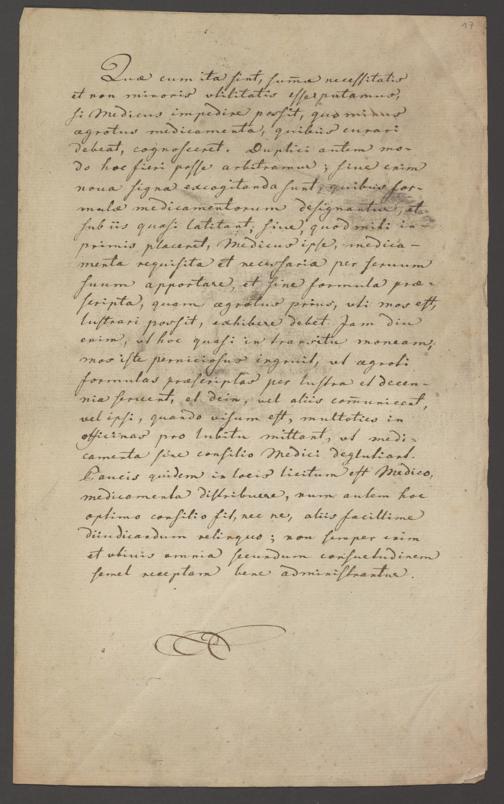 17
Quae cum ita sint, sumae necessitatis
et non minoris utilitatis esse putamus,
si Medicus impedire possit, quo minus
aegrotus medicamenta, quibus curari
debeat, cognosceret. Duplici autem mo-
do hoc fieri posse arbitramur; sive enim
nova signa excogitanda sunt, quibus for-
mulae medicamentorum designantur, et
sub iis quasi latitant, sive, quod mihi in-
primis placeret, Medicus ipse, medica-
menta requisita et necessaria per servum
suum apportare, et sine formula prae-
scripta, quam aegrotus prius, uti mos est,
lustrari possit, exhibere debet. Jam diu
enim, ut hoc quasi in transitu moneam,
mos iste perniciosus ingruit, ut aegroti
formulas praescriptas per lustra et decen-
nia servent, et dein, vel aliis comunicent,
vel ipsi, quando visum est, multoties in
officinas pro lubitu mittant, ut medi-
camenta sine consilio Medici deglutiant.
Paucis quidem in locis licitum est Medico,
medicamenta distribuere, num autem hoc
optimo consilio fit, nec ne, aliis facillime
diiudicandum relinquo; non semper enim
et ubivis omnia secundum consuetudinem
semel receptam bene administrantur.